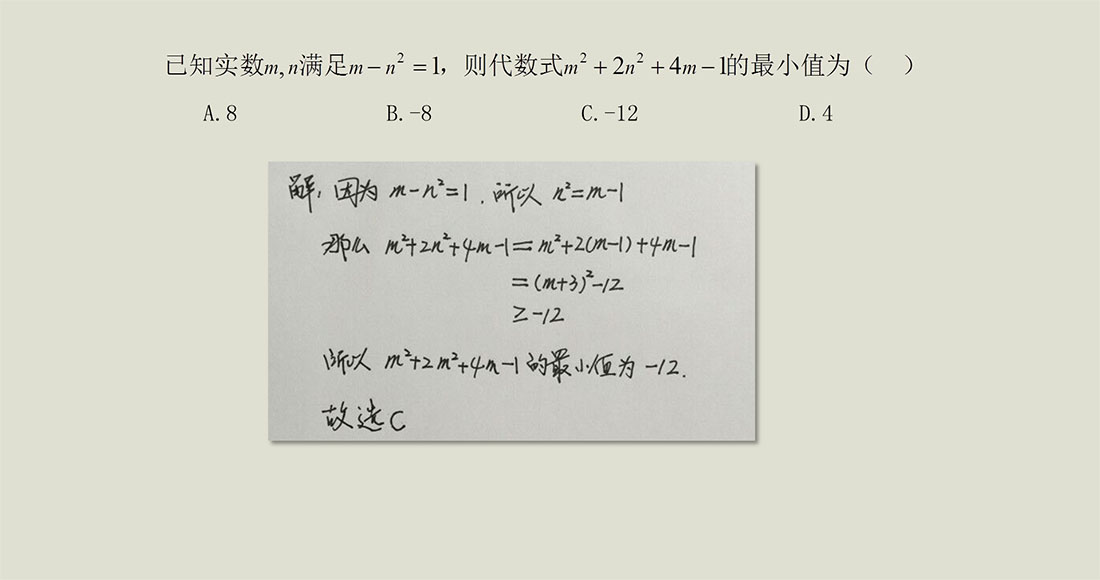 已知实数m, n满足m－n²＝1，则代数式m²＋2n²＋4m－1的最小值为（　）
A.8　B.-8　C.-12　D.4
解，因为 m-n²=1，所以 n²=m-1
那么 m²+2n²+4m-1=m²+2(m-1)+4m-1
=(m+3)²-12
≥-12
所以 m²+2m²+4m-1的最小值为 -12.
故选C